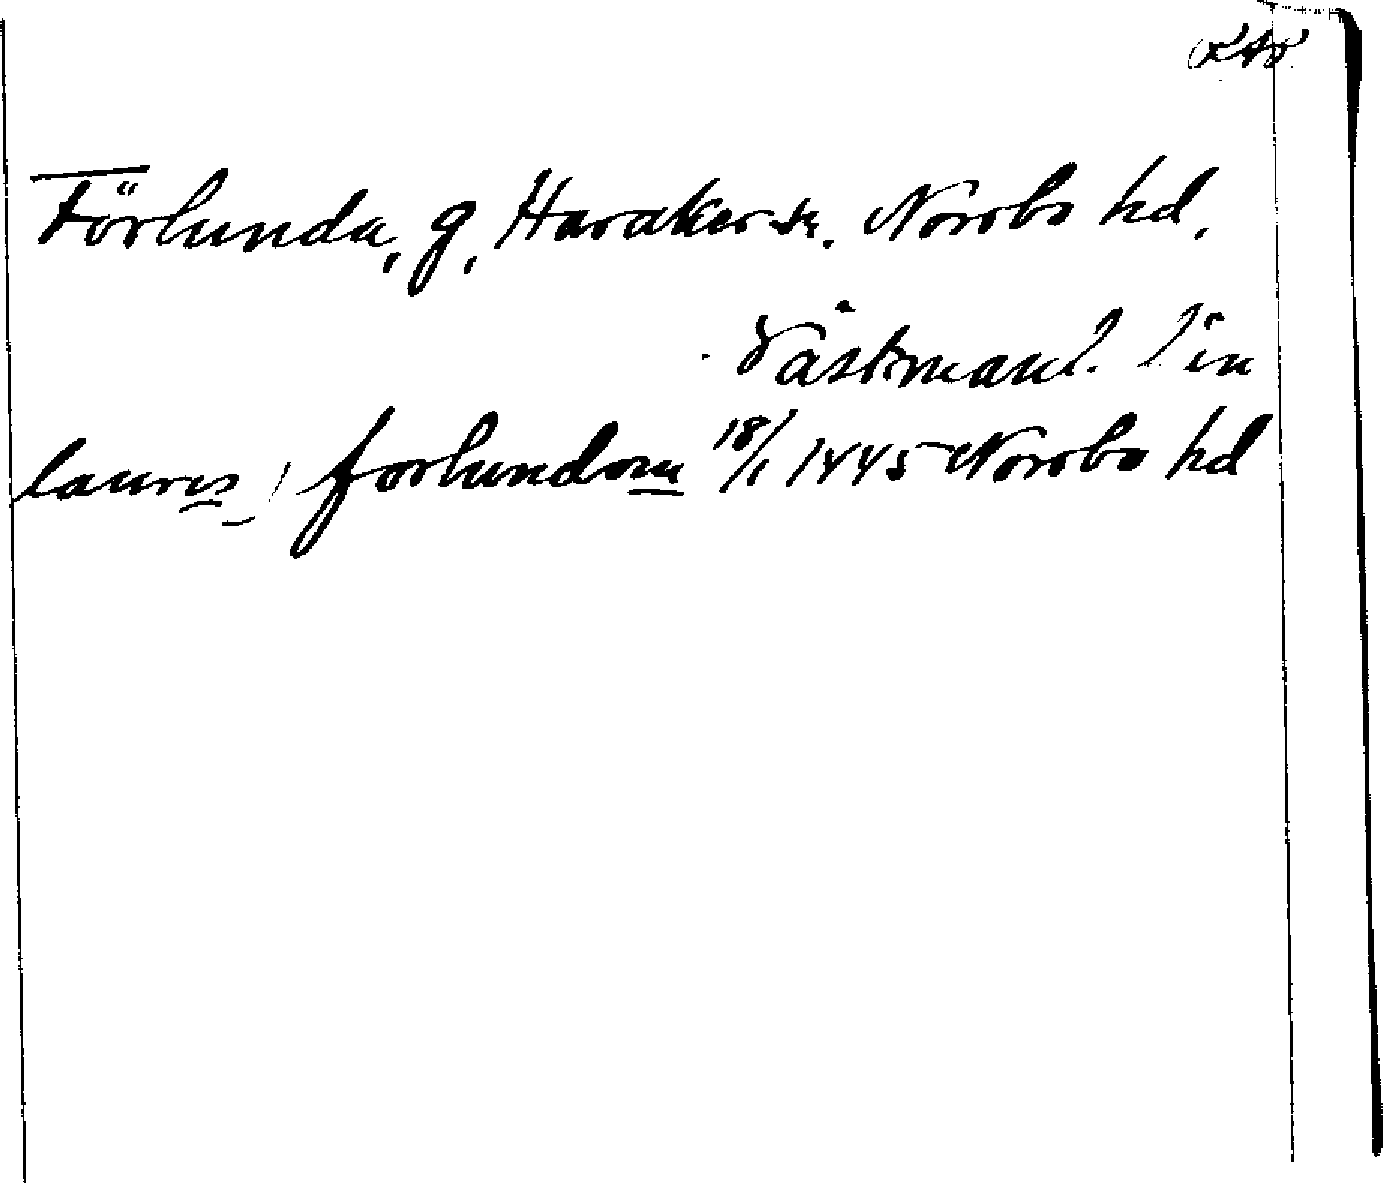 Förlunda, g, Haraker sn. Norrbo hd.
Västmanl. län
laures j forlundom 18/1 1445 Norrbo hd